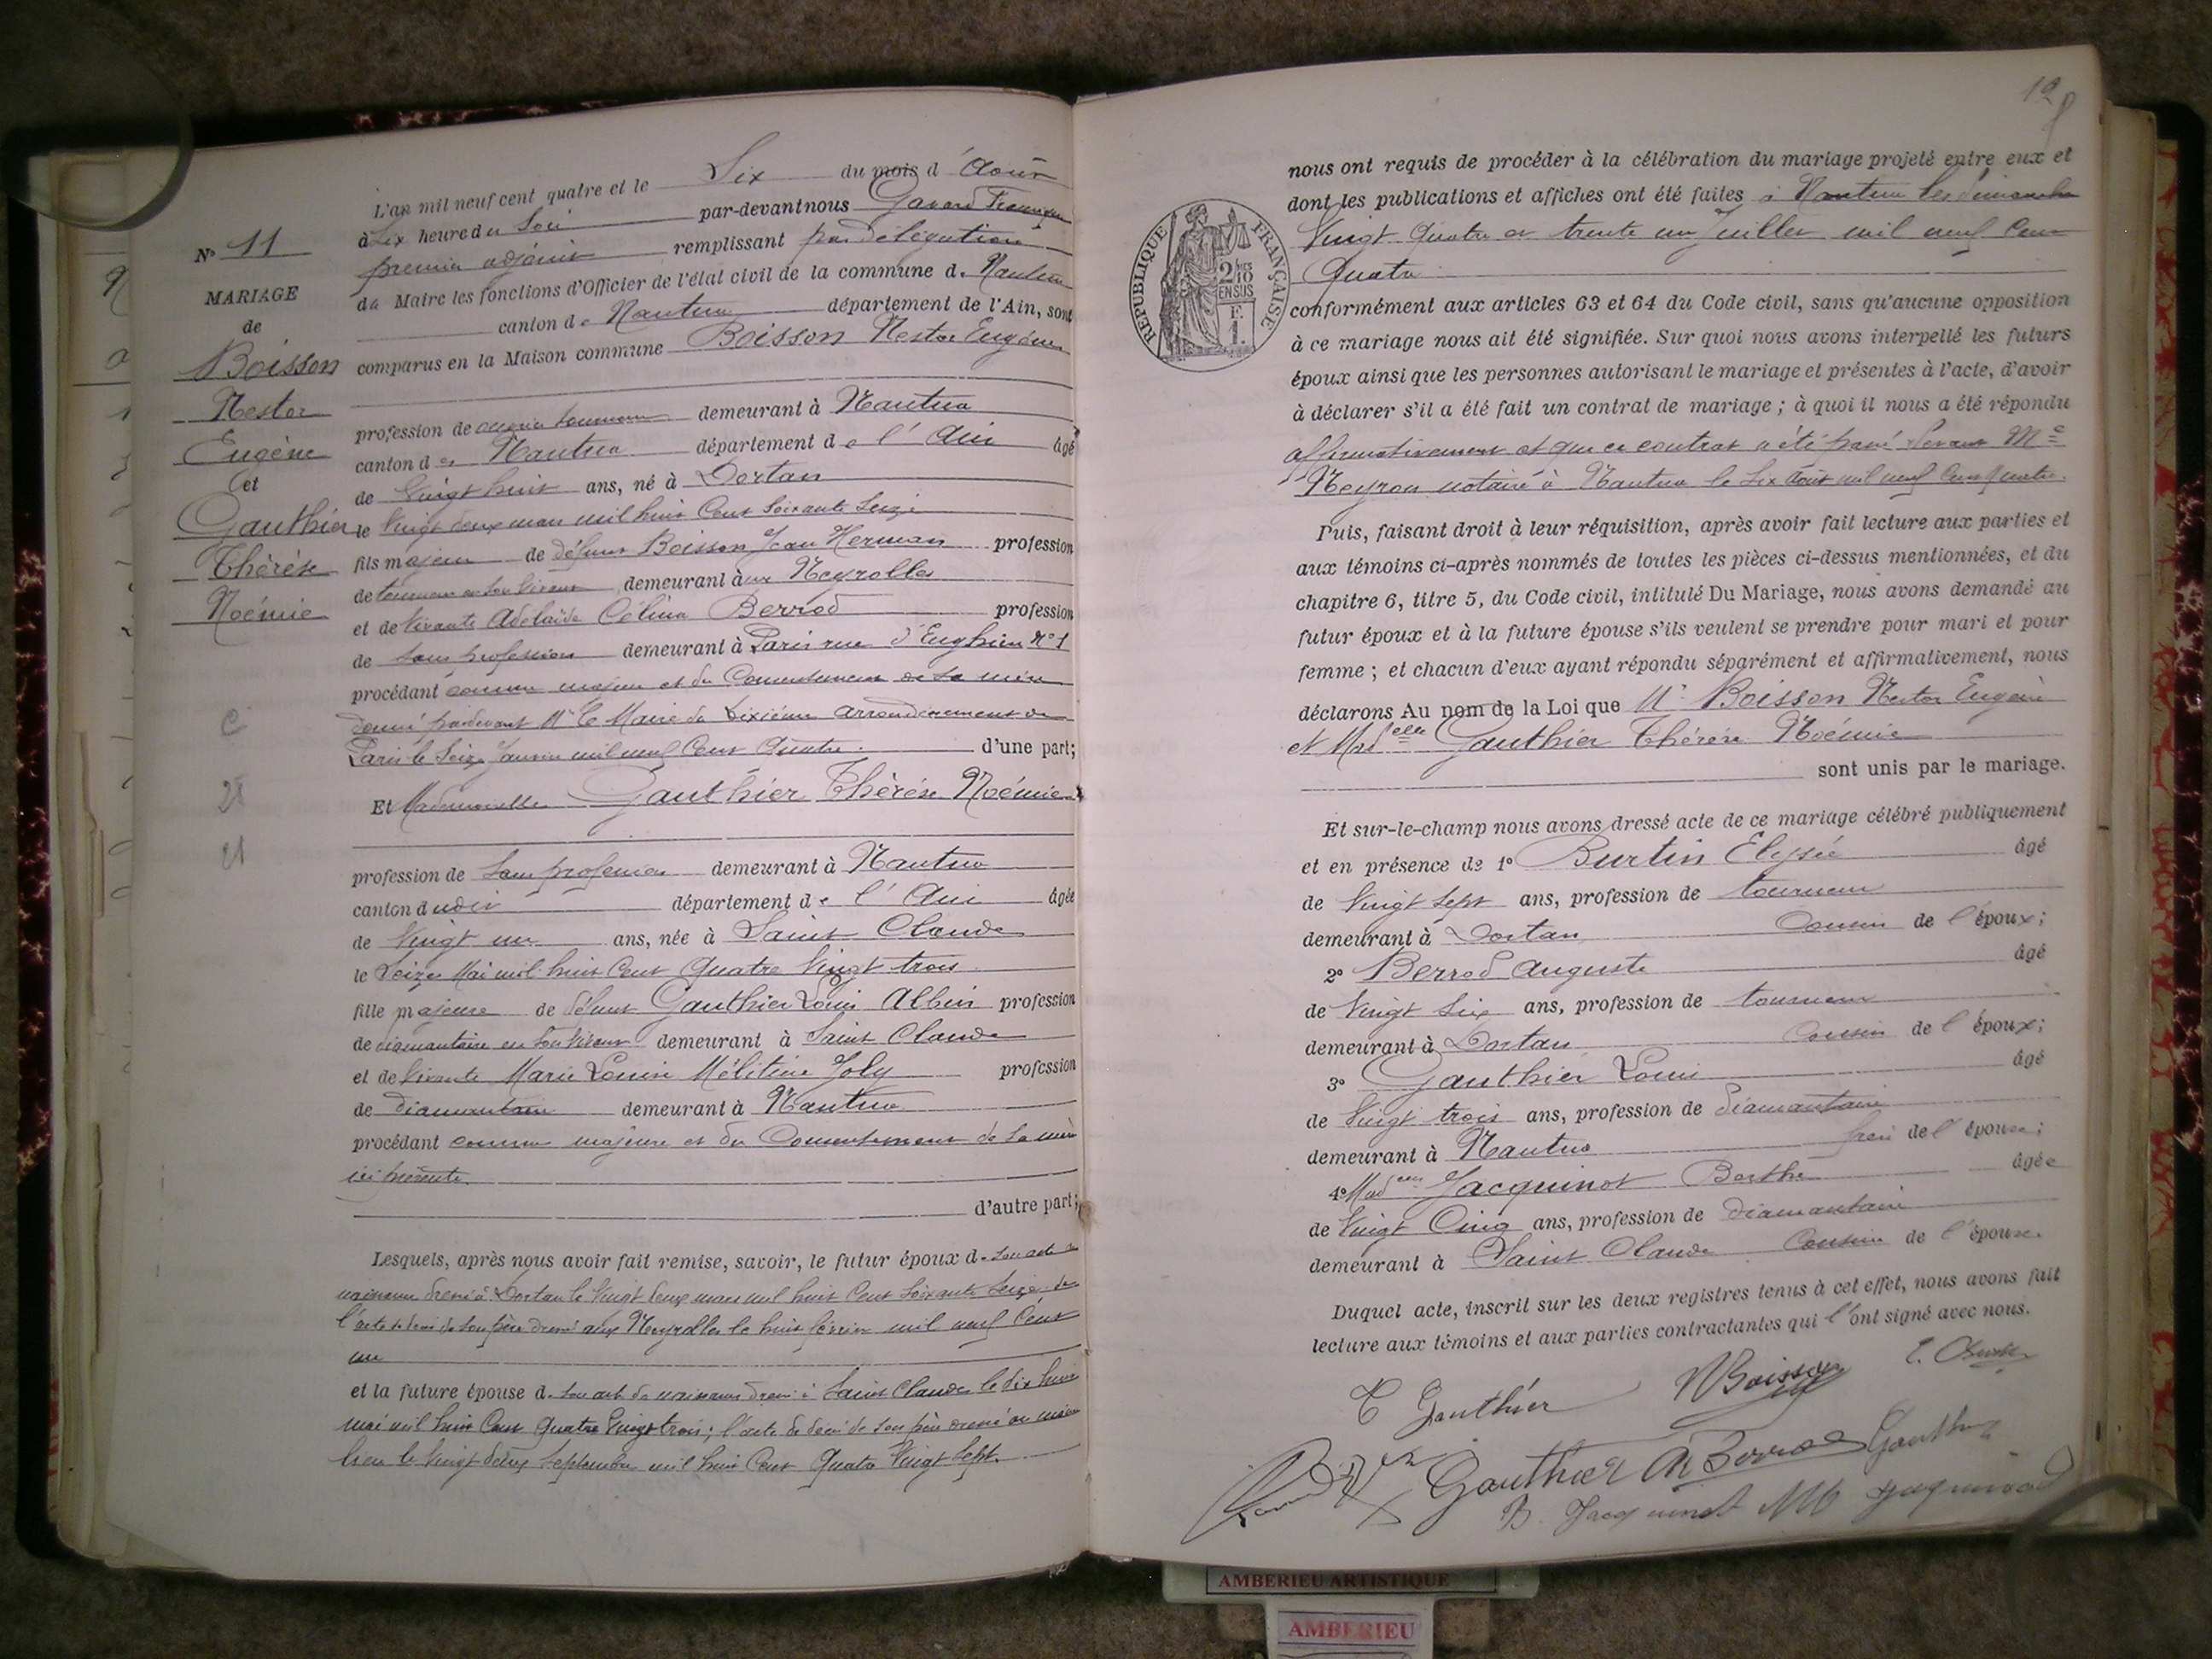 N° 11
MARIAGE
de
Boisson
Nestor
Eugène
et
Gauthier
Thérèse
Noémie
L'an mil neuf cent quatre et le Six du mois d'Août
à Six heure du Soir par-devant nous Gavard
premier adjoint remplissant par délégation
du Maire les fonctions d'Officier de l'état civil de la commune de Nantua
canton de Nantua département de l'Ain, sont
comparus en la Maison commune Boisson Nestor Eugène
profession de ouvrier tourneur demeurant à Nantua
canton de Nantua département de l'Ain âgé
de Vingt huit ans, né à Dortan
le Vingt deux mars mil huit Cent Soixante Seize
fils majeur de défunt Boisson Jean Herman profession
de tourneur en son vivant demeurant aux Neyrolles
et de vivante Adelaïde Célina Berrod profession
de sans profession demeurant à Paris rue d'Enghien N° 1
procédant comme majeur et du Consentement de sa mère
donné pardevant Mr le Maire du dixième arrondissement de
Paris le Seize Janvier mil neuf Cent Quatre. d'une part;
Et Mademoiselle Gauthier Thérèse Noémie
profession de Sans profession demeurant à Nantua
canton dudit département de l'Ain âgée
de Vingt un ans, née à Saint Claude
le Seize Mai mil huit Cent Quatre Vingt trois
fille majeure de défunt Gauthier Louis Albin profession
de diamantaire en son vivant demeurant à Saint Claude
et de vivante Marie Louise Mélitine Joly profession
de diamantaire demeurant à Nantua
procédant comme majeure et du Consentement de sa mère
ici présente.
d'autre part;
Lesquels, après nous avoir fait remise, savoir, le futur époux de son acte de
naissance dressé à Dortan le Vingt deux mars mil huit Cent Soixante Seize de
l'acte de décès de son père dressé aux Neyrolles le huit février mil neuf Cent
un
et la future épouse de son acte de naissance dressé à Saint Claude le dix huit
mai mil huit Cent Quatre Vingt trois; l'acte de décès de son père dressé au même
lieu le Vingt deux Septembre mil huit Cent Quatre Vingt Sept.
12
nous ont requis de procéder à la célébration du mariage projeté entre eux et
dont les publications et affiches ont été faites à Nantua les dimanches
Vingt Quatre et trente un Juillet mil neuf Cent
Quatre
RÉPUBLIQUE FRANÇAISE
2/10mes
EN SUS
F.
1.
conformément aux articles 63 et 64 du Code civil, sans qu'aucune opposition
à ce mariage nous ait été signifiée. Sur quoi nous avons interpellé les futurs
époux ainsi que les personnes autorisant le mariage et présentes à l'acte, d'avoir
à déclarer s'il a été fait un contrat de mariage; à quoi il nous a été répondu
affirmativement et que ce contrat a été passé devant Me
Neyron notaire à Nantua le Six Août mil neuf Cent Quatre.
Puis, faisant droit à leur réquisition, après avoir fait lecture aux parties et
aux témoins ci-après nommés de toutes les pièces ci-dessus mentionnées, et du
chapitre 6, titre 5, du Code civil, intitulé Du Mariage, nous avons demandé au
futur époux et à la future épouse s'ils veulent se prendre pour mari et pour
femme; et chacun d'eux ayant répondu séparément et affirmativement, nous
déclarons Au nom de la Loi que Mr Boisson Nestor Eugène
et Melle Gauthier Thérèse Noémie
sont unis par le mariage.
Et sur-le-champ nous avons dressé acte de ce mariage célébré publiquement
et en présence de 1° Burtin Elysée âgé
de Vingt Sept ans, profession de tourneur
demeurant à Dortan Cousin de l'époux;
2° Berrod Auguste âgé
de Vingt Six ans, profession de tourneur
demeurant à Dortan Cousin de l'époux;
3° Gauthier Louis âgé
de Vingt trois ans, profession de diamantaire
demeurant à Nantua frère de l'épouse;
4° Jacquinot Berthe âgée
de Vingt Cinq ans, profession de diamantaire
demeurant à Saint Claude Cousine de l'épouse.
Duquel acte, inscrit sur les deux registres tenus à cet effet, nous avons fait
lecture aux témoins et aux parties contractantes qui l'ont signé avec nous.
T Gauthier N Boisson
Gauthier A Berrod Gauthier
B. Jacquinot
AMBERIEU ARTISTIQUE
AMBERIEU